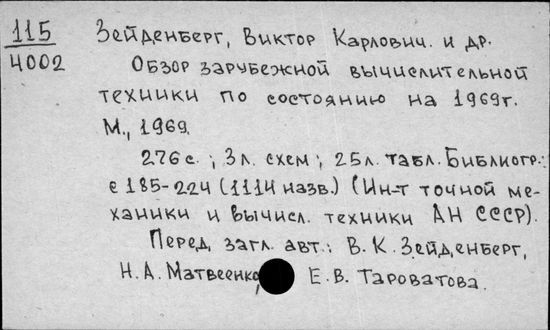 115 Зейденберг, Виктор Карлович. и др.
4002 Обзор зарубежной вычислительной
техники по состоянию на 1969г.
М., 1969.
276с.; 3л. схем; 25л. табл. Библиогр.:
с 185-224 (1114 назв.) (Ин-т точной ме-
ханики и вычисл. техники АН СССР).
Перед загл. авт.: В.К. Зейденберг,
Н.А. Матвеенко, Е.В. Тароватова.